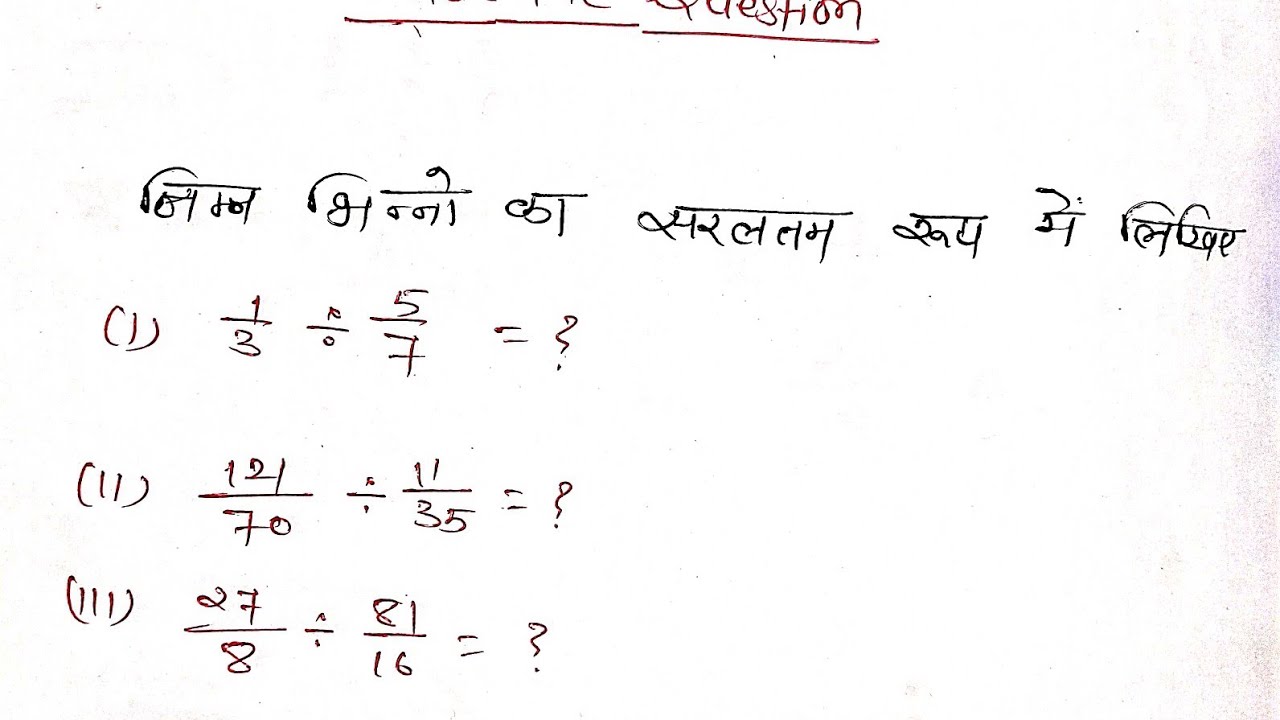 Question
निम्न भिन्नो का सरलतम रूप में लिखिए
(I) 1/3 ÷ 5/7 = ?
(II) 121/70 ÷ 11/35 = ?
(III) 27/8 ÷ 81/16 = ?